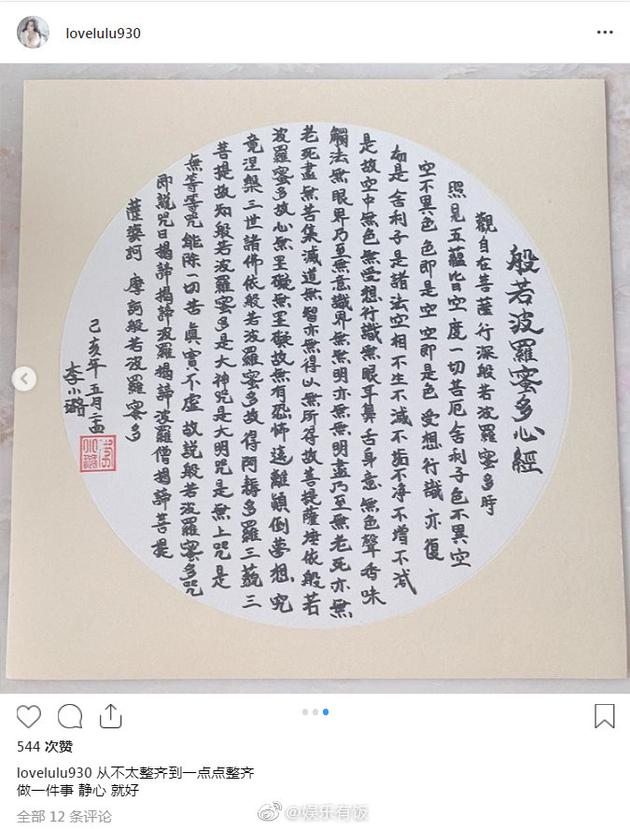 lovelulu930
般若波羅蜜多心經
觀自在菩薩行深般若波羅蜜多時
照見五蘊皆空度一切苦厄舍利子色不異空
空不異色 色即是空 空即是色 受想行識亦復
如是 舍利子是諸法空相 不生不滅不垢不净不增不減
是故空中無色無受想行識無眼耳鼻舌身意無色聲香味
觸法無眼界乃至無意識界無無明亦無無明盡乃至無老死亦無
老死盡無苦集滅道無智亦無得以無所得故菩提薩埵依般若
波羅蜜多故心無罣礙無罣礙故無有恐怖遠離顛倒夢想究
竟涅槃三世諸佛依般若波羅蜜多故得阿耨多羅三藐三
菩提故知般若波羅蜜多是大神咒是大明咒是無上咒是
無等等咒能除一切苦 真實不虛 故説般若波羅蜜多咒
即説咒曰揭諦揭諦波羅揭諦 波羅僧揭諦菩提
薩婆訶 摩訶般若波羅蜜多
己亥年 五月二
李小璐
544 次赞
lovelulu930 从不太整齐到一点点整齐
做一件事 静心 就好
全部 12 条评论
@娱乐有饭